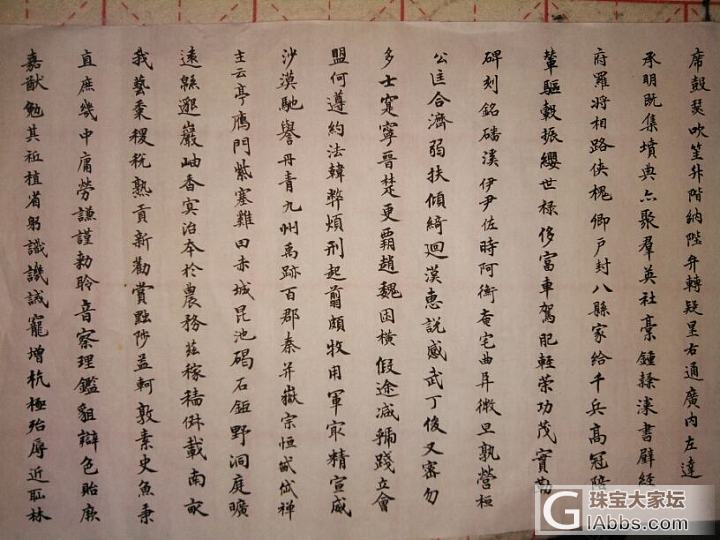 席鼓瑟吹笙升階納陛弁轉疑星右通廣內左達
承明既集墳典亦聚羣英杜稾鍾隸漆書壁經
府羅將相路俠槐卿戶封八縣家給千兵高冠陪
輦驅轂振纓世祿侈富車駕肥輕策功茂實勒
碑刻銘磻溪伊尹佐時阿衡奄宅曲阜微旦孰營桓
公匡合濟弱扶傾綺迴漢惠說感武丁俊乂密勿
多士寔寧晉楚更霸趙魏困橫假途滅虢踐土會
盟何遵約法韓弊煩刑起翦頗牧用軍最精宣威
沙漠馳譽丹青九州禹跡百郡秦并嶽宗恒岱禪
主云亭鴈門紫塞雞田赤城昆池碣石鉅野洞庭曠
遠緜邈巖岫杳冥治本於農務茲稼穡俶載南畝
我藝黍稷稅熟貢新勸賞黜陟孟軻敦素史魚秉
直庶幾中庸勞謙謹勅聆音察理鑑貌辯色貽厥
嘉猷勉其祗植省躬識譏誡寵增抗極殆辱近恥林
珠宝大家坛
lAbbs.com